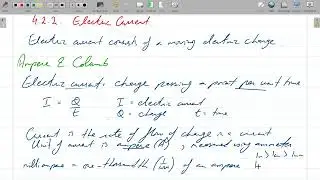 4.2.2. Electric Current
Electric current consists of a moving electric charge
Ampere & Coulomb
Electric current: charge passing a point per unit time
I = Q/t I = electric current
Q = charge t = time
Current is the rate of flow of charge in a current
Unit of current is ampere (A), measured using ammeter
milliampere = one-thousandth (1/1000) of an ampere